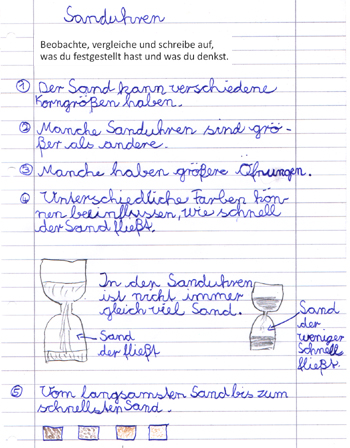 Sanduhren
Beobachte, vergleiche und schreibe auf,
was du festgestellt hast und was du denkst.
① Der Sand kann verschiedene
Korngrößen haben.
② Manche Sanduhren sind grö-
ßer als andere.
③ Manche haben größere Öfnungen.
④ Unterschiedliche Farben kön-
nen beeinflussen, wie schnell
der Sand fließt.
In den Sanduhren
ist nicht immer
gleich viel Sand.
Sand
der fließt
Sand
der
weniger
Schnell
fließt.
⑤ Vom langsamsten Sand bis zum
schnellsten Sand.